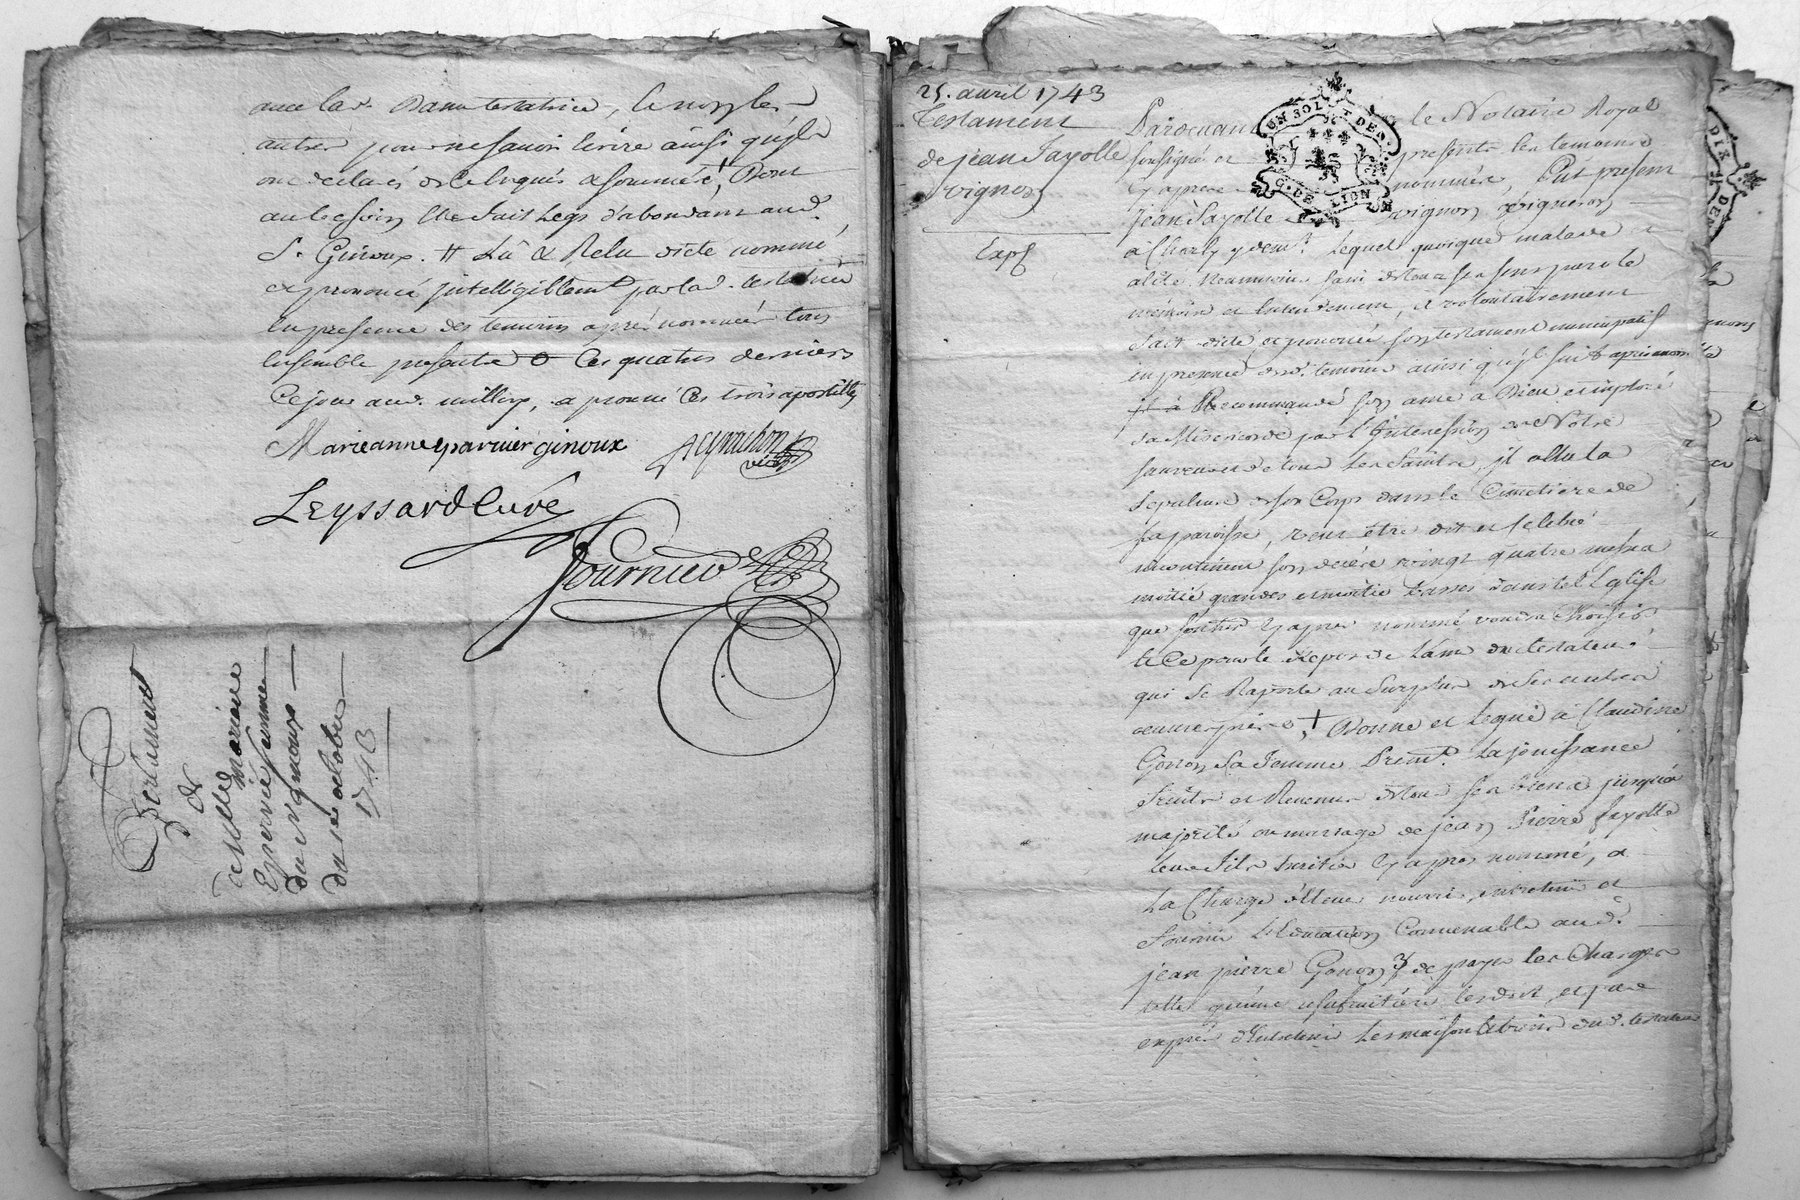 testatrice, le nopples
autres pour ne savoir écrire ainsi qu'ils
ont declaré de ce Enquis a sommére, Dont
au besoin Elle fait Legs d'abondant aud.
S. Ginoux. # Lû & Relu dicté nommé
et prononcé jntelligiblemt par lad. testatrice
En presence des temoins aprés nommées tous
Ensemble presents Ces quatres derniers
Ce jour aud. millery, a prouvé Ces trois apostilles
Marieanne parvier ginoux
Leyssard Curé
fournier
Testament
de
demlle marianne
Epervier femme
du Sr ginoux
du octobre
1743
25. avril 1743
Testament
de jean fayolle
vignon
Expé
UN SOL QT DEN.
G. DE LION
DIX DEN
Pardevant le Notaire Royal
soussigné et presents les temoins
cy apres nommés, fut present
jean fayolle vignon vigneron
a Charly y demt. Lequel quoique malade et
alité Neanmoins sain de tous ses sens parole
mémoire et Entendement, a volontairement
fait dicté et prononcé son testament nuncupatif
en presence desd. temoins ainsi qu'jl suit aprés avoir
jl a Recommandé son ame a Dieu et imploré
sa Misericorde par l'Intercession de Notre
sauveur et de tous Les Saints, jl allu la
sepulture de son Corps dans le Cimetière de
sa paroisse, veut être dit et selebré
incontinent son décés vingt quatre messes
moitié grandes et moitié basses dans tel Eglise
que sontier cy apres nommé voudra Choisir
le Ce pour le Repos de l'ame du testateur
qui se Raporte au Surplus de ses autres
œuvres pies, + Donne et Legue a Claudine
Gonon sa femme Premt. La jouissance
fruits et Revenus de tous ses biens jusqu'a
majorité ou mariage de jean Pierre fayolle
leur fils heritier cy apres nommé, a
La Charge d'Elever nourrir, entretenir et
fournir l'éducation Convenable aud.
jean pierre Gonon & de payer les Charges
telle qu'une usufruitiére les doit, et par
exprés d'Entretenir Les maison et bois dud. testateur